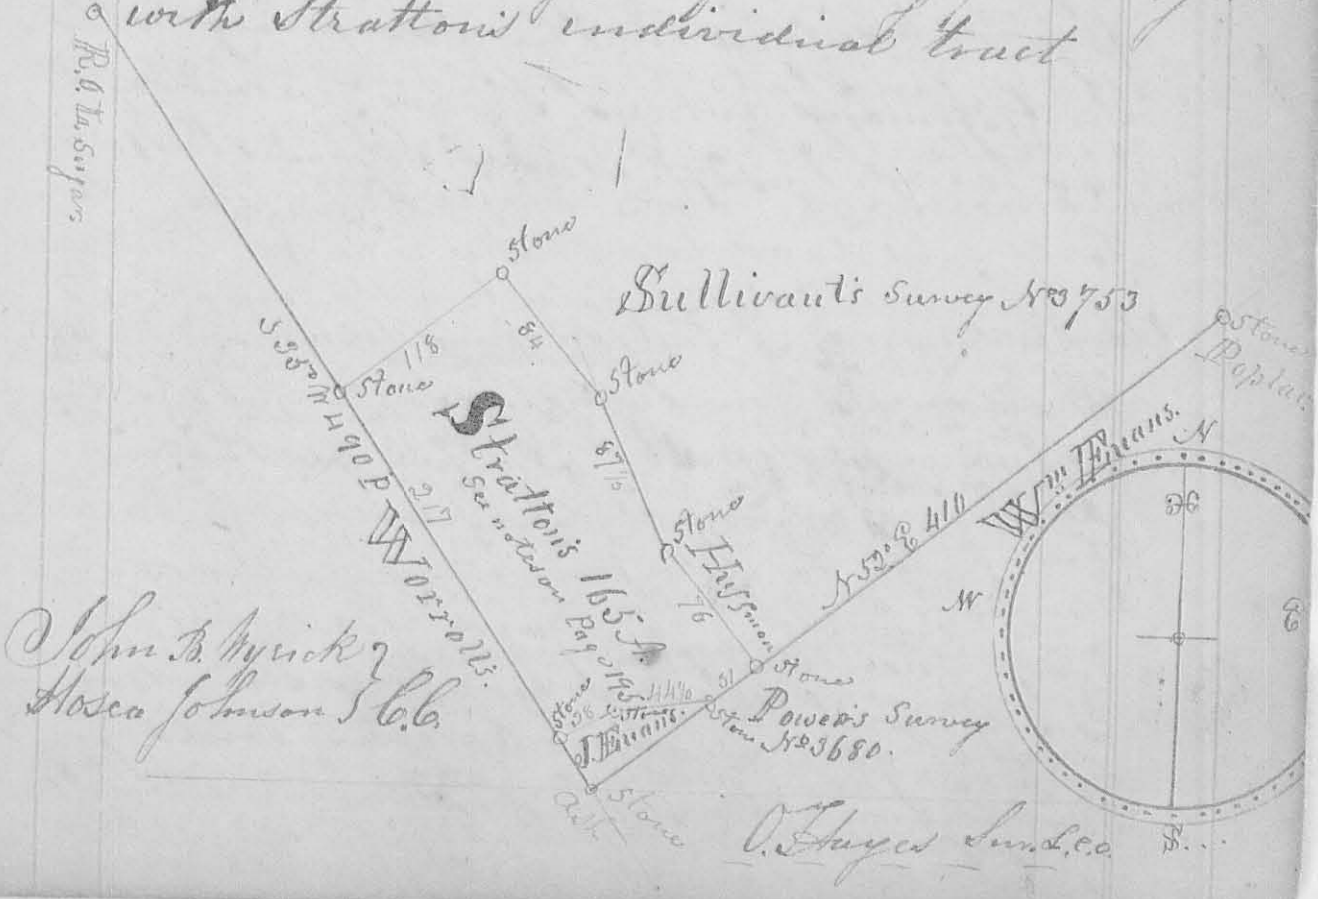 with Stratton's individual tract
R. O. Sugar
Stone
118
84
Sullivant's Survey No 3753
Stone
Poplar
S 35° W 490 P
Stone
217
Worrolls.
Stratton's 165 A.
See notes on Page 195
Stone
87½
Stone
Huffman
76
N 53° E 410
Wm Evans.
N
W
E
S...
John B. Wyrick }
Hosea Johnson } C.C.
Stone
38
44½
Stone
51
Stone
J. Evans.
Stone
Powers's Survey
No 3680.
Ash
Stone
O. Hayes Sur. L.C.O.